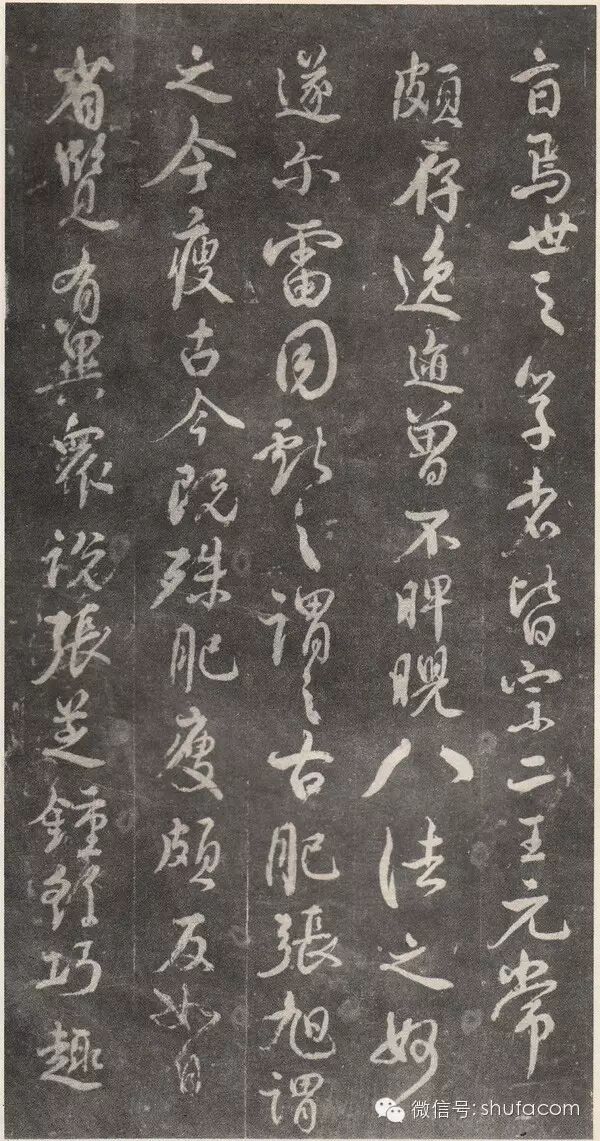 焉世之學者皆宗二王元常
頗存逸迹曾不睥睨八法之妙
遂尔雷同獻之謂之古肥張旭謂
之今瘦古今既殊肥瘦頗反如自
省覽有異衆說張芝鍾繇巧趣
微信号: shufacom